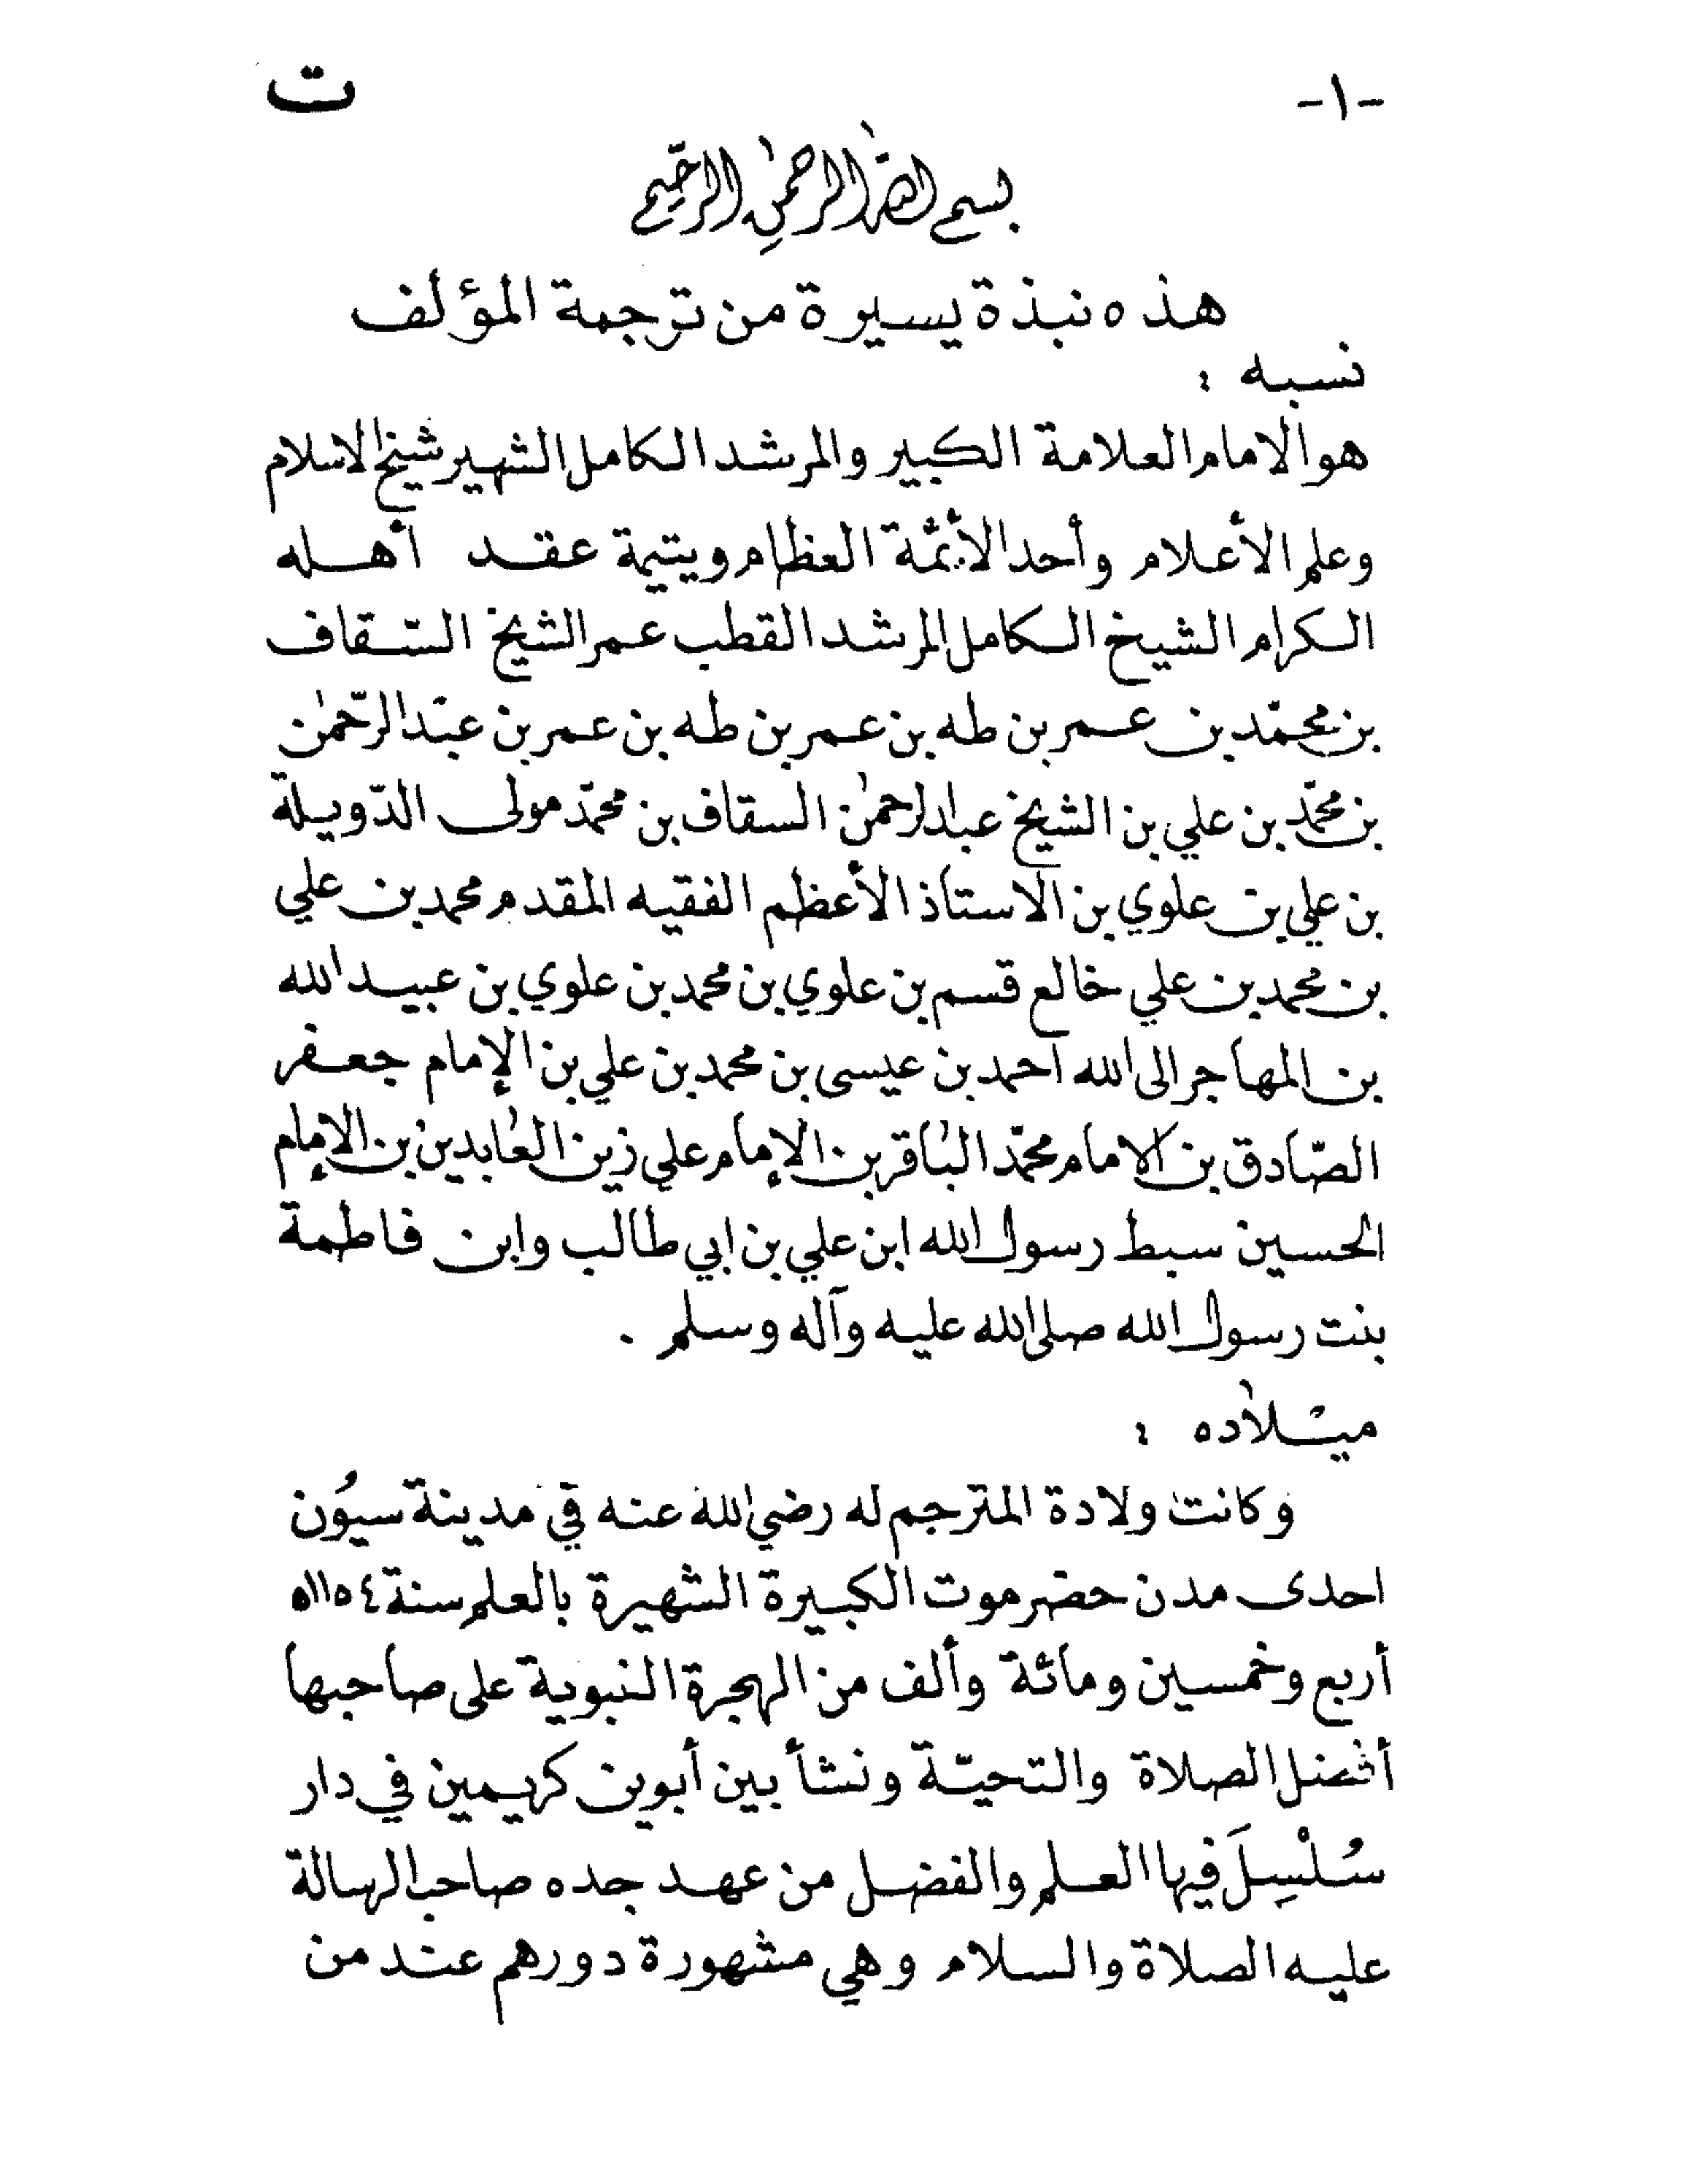 -١- ت
بسم الله الرحمن الرحيم
هذه نبذة يسيرة من ترجمة المؤلف
نسبه :
هو الامام العلامة الكبير والمرشد الكامل الشهير شيخ الاسلام
وعلم الأعلام وأحد الأئمّة العظام ويتيمة عقد أهله
الكرام الشيخ الكامل المرشد القطب عمر الشيخ السّقاف
بن محمّد بن عمر بن طه بن عمر بن طه بن عمر بن عبد الرّحمٰن
بن محمّد بن علي بن الشيخ عبد الرحمٰن السقاف بن محمّد مولى الدّويلة
بن علي بن علوي بن الاستاذ الأعظم الفقيه المقدم محمد بن علي
بن محمد بن علي خالع قسم بن علوي بن محمد بن علوي بن عبيد الله
بن المهاجر الى الله احمد بن عيسى بن محمد بن علي بن الإمام جعفر
الصّادق بن الامام محمّد الباقر بن الإمام علي زين العابدين بن الإمام
الحسين سبط رسول الله ابن علي بن ابي طالب وابن فاطمة
بنت رسول الله صلى الله عليه وآله وسلم .
ميلاده :
وكانت ولادة المترجم له رضي الله عنه في مدينة سيُون
احدى مدن حضرموت الكبيرة الشهيرة بالعلم سنة ١١٥٤ه
أربع وخمسين ومائة وألف من الهجرة النبوية على صاحبها
أفضل الصلاة والتحيّة ونشأ بين أبوين كريمين في دار
سُلْسِلَ فيها العلم والفضل من عهد جده صاحب الرسالة
عليه الصلاة والسلام وهي مشهورة دورهم عند من